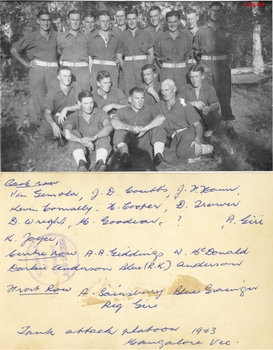 Back row
Ven Gemola, J. D. Coutts, J. N
Kevin Connally, H. Cooper, D. Trower
D. Wright, H. Goodear, ? A. Giri
K. Joyce
Centre row A. A. Giddings N. McDonald
Darkie Anderson Blue (R.K.) Anderson
Front Row A. Sainsbury Blue Grainger
Reg. Giri
Tank attack platoon 1943
Mangalore Vic.